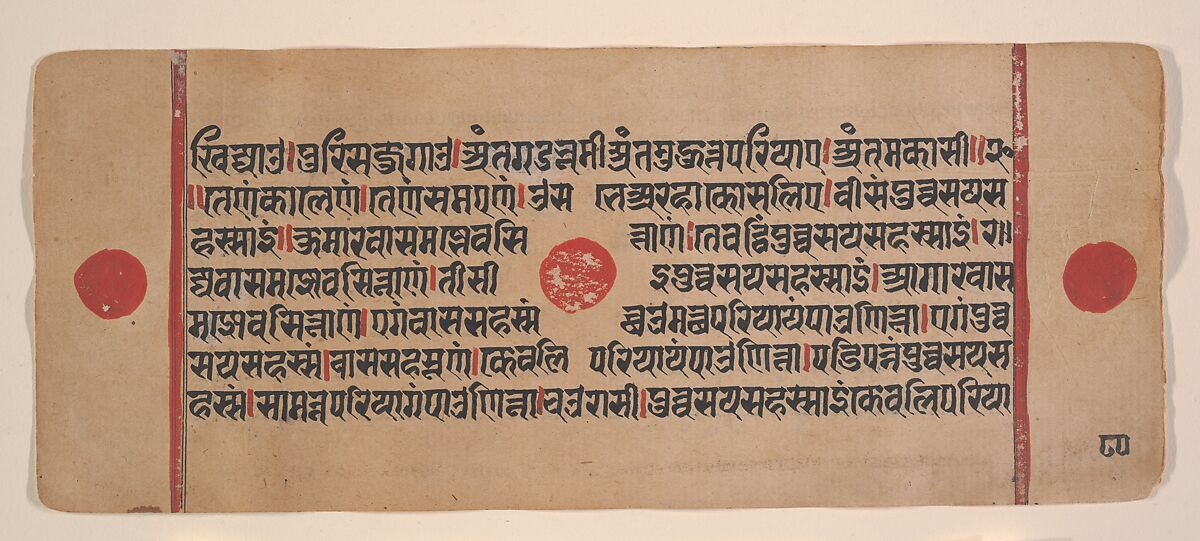 खिज्जाउ।पुरिसजुगाउ।अंतगडउन्नमीअंतमुज्जत्तपरियाए।अंतमकासी॥२०
॥तेणंकालेणं।तेणंसमएणं।उस भेअरहाकोसलिए।वीसंपुव्वसयस
हस्साइं॥कुमारवासमज्झेवसि त्ताणं।तेवट्ठिंपुव्वसयसहस्साइं।र॥
ज्जवासमज्झेवसित्ताणं।तीसी इंपुव्वसयसहस्साइं।आगारवास
मज्झेवसित्ताणं।एगंवाससहस्सं छउमत्थपरियायंपाउणित्ता।एगंपुव्व
सयसहस्सं।वाससहस्सूणं।केवलि परियायंपाउणित्ता।पडिपुन्नंपुव्वसयस
हस्सं।सामन्नपरियागंपाउणित्ता।चउरासी।पुव्वसयसहस्साइंकेवलिपरिया
८५